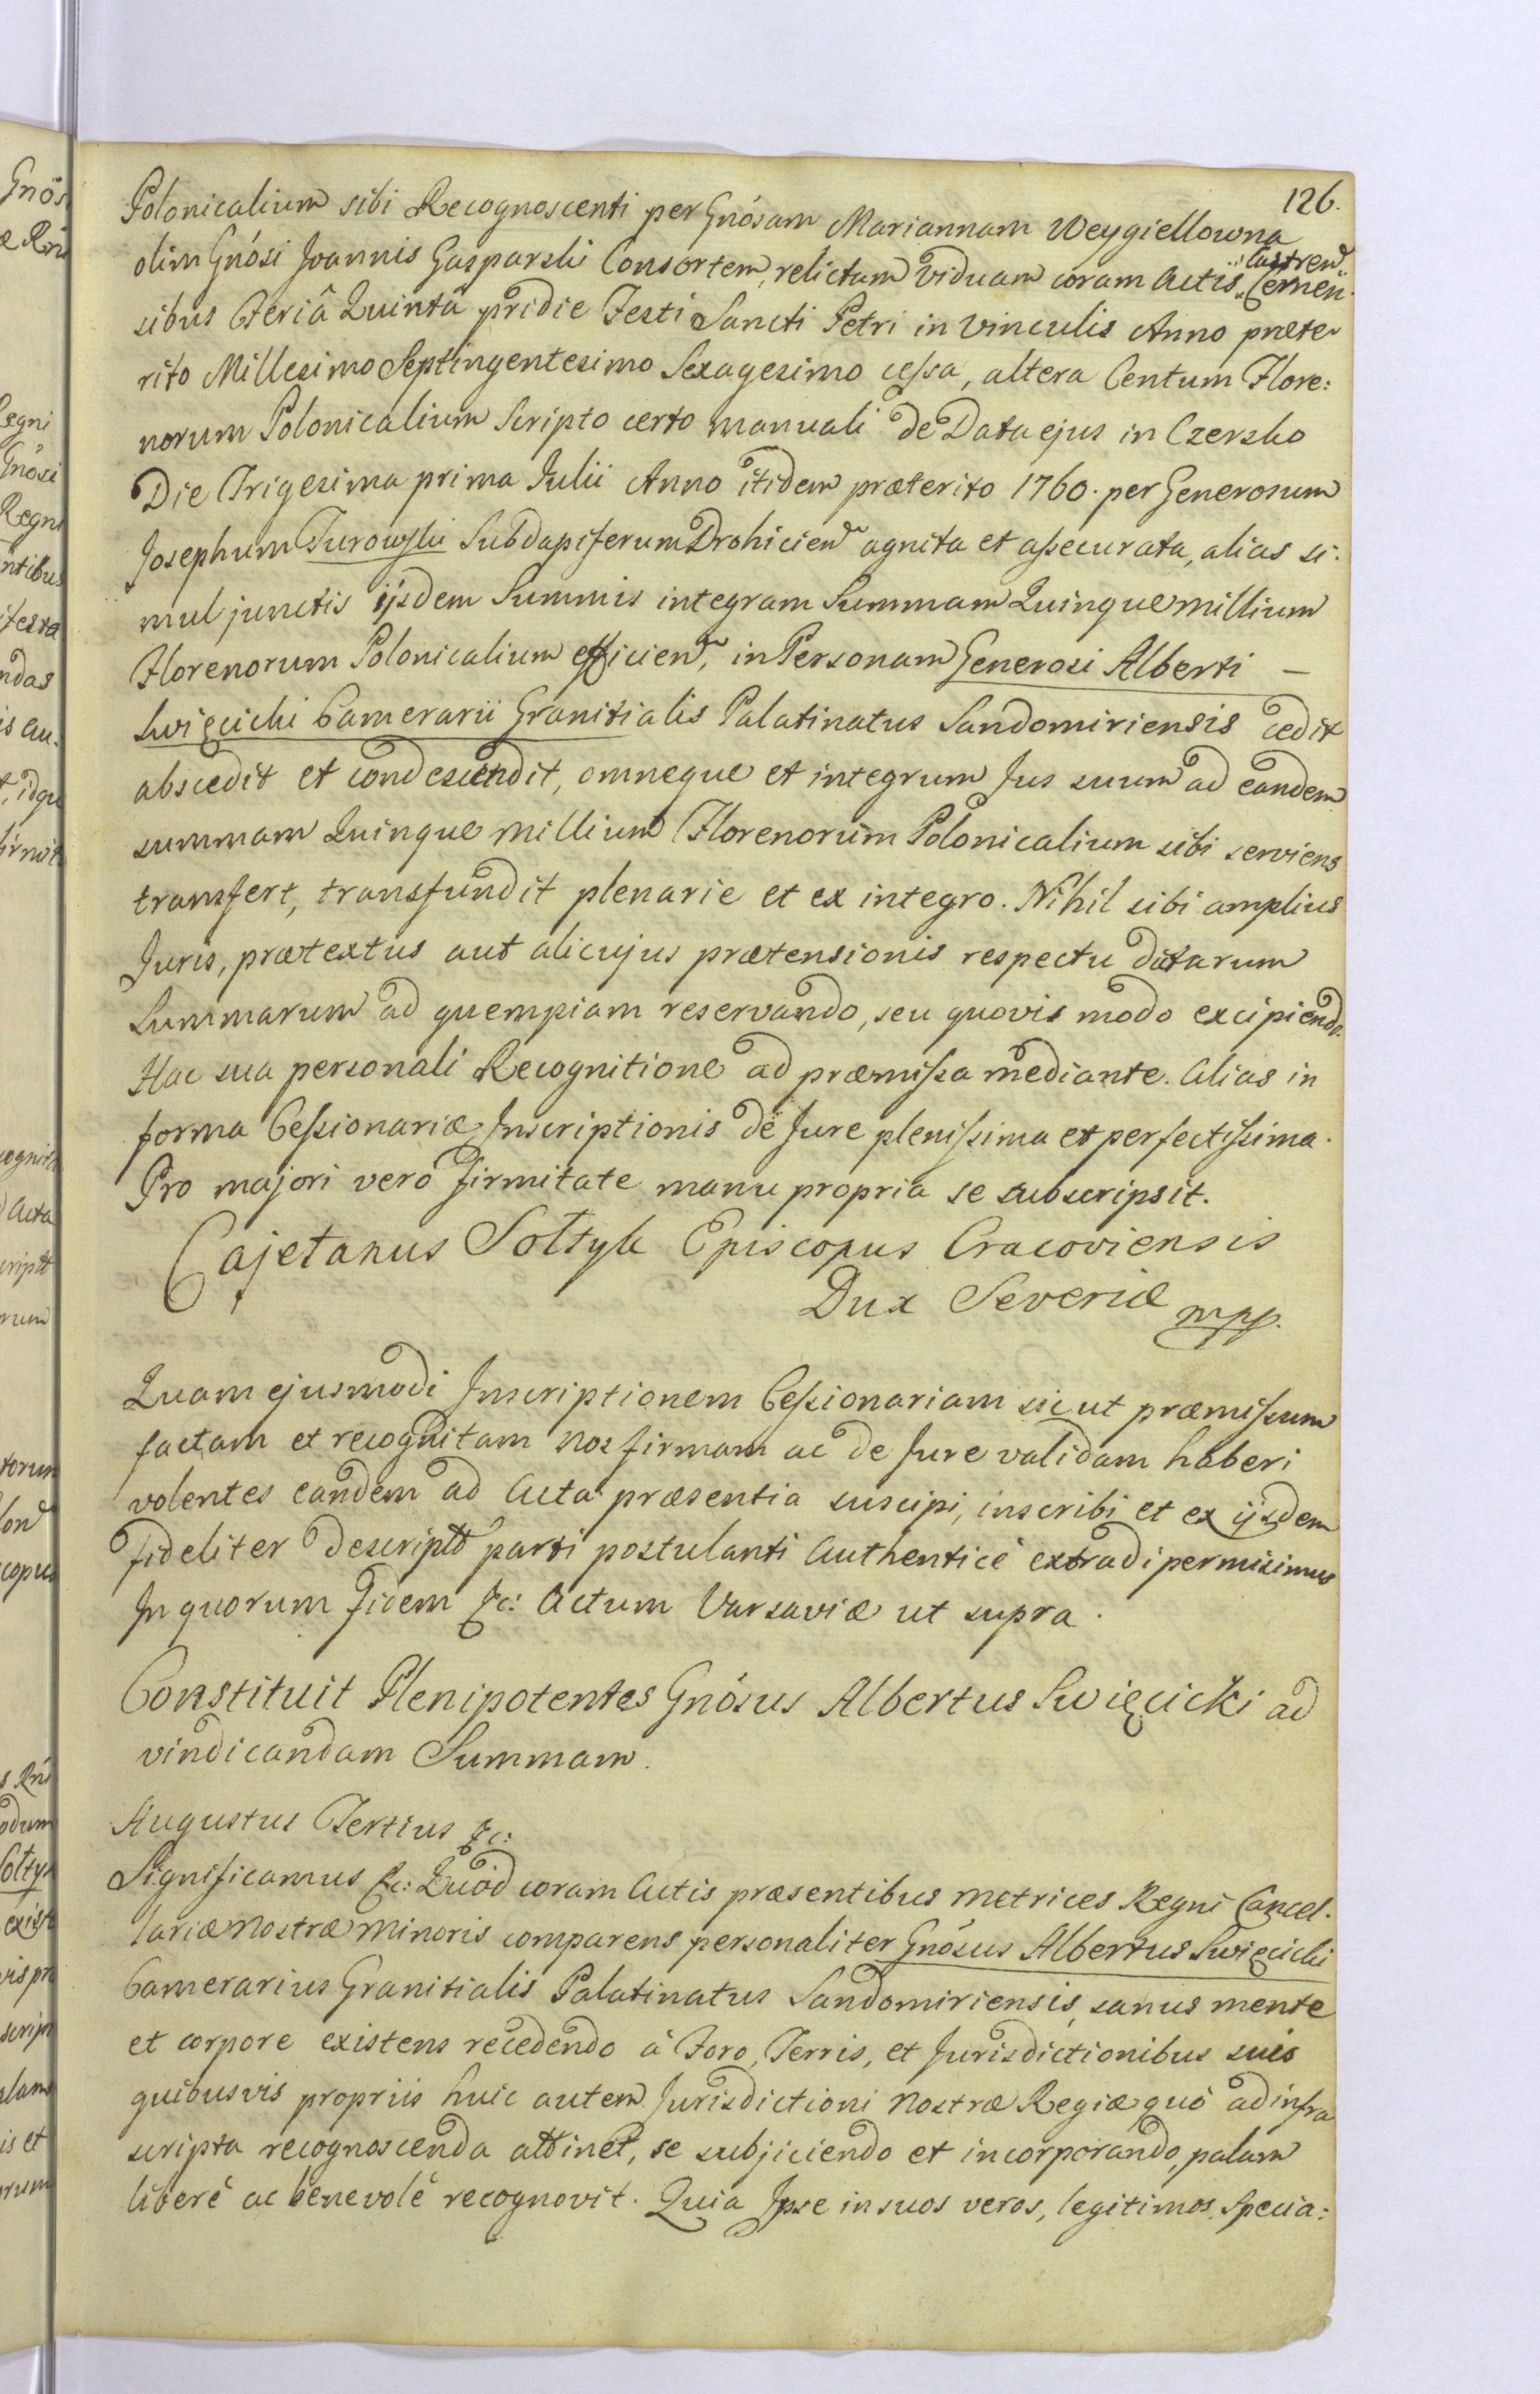 126.
Polonicalium sibi Recognoscenti per Gnósam Mariannam Weygiellowna
olim Gnósi Joannis Gasparski Consortem, relictam viduam coram Actis Castren̄ Cernen-
sibus Feriâ Quintâ pridie Festi Sancti Petri in vinculis Anno præte-
rito Millesimo Septingentesimo Sexagesimo cessa, altera Centum Flore:
norum Polonicalium Scripto certo manuali de Data ejus in Czersko
Die Trigesima prima Julii Anno itidem præterito 1760. per Generosum
Josephum Turowski Subdapiferum Drohicien̄ agnita et assecurata, alias si-
mul junctis ijsdem Summis integram Summam Quinque millium
Florenorum Polonicalium efficien̄, in Personam Generosi Alberti —
Swięcicki Camerarii Granitialis Palatinatus Sandomiriensis cedit
abscedit et condescendit, omneque et integrum Jus suum ad eandem
summam Quinque millium Florenorum Polonicalium sibi serviens
transfert, transfundit plenarie et ex integro. Nihil sibi amplius
Juris, prætextus aut alicujus prætensionis respectu dictarum
Summarum ad quempiam reservando, seu quovis modo excipiendo.
Hac sua personali Recognitione ad præmissa mediante. Alias in
forma Cessionariæ Inscriptionis de Jure plenissima et perfectissima.
Pro majori vero firmitate manu propria se subscripsit.
Cajetanus Sołtyk Episcopus Cracoviensis
Dux Severiæ mpp.
Quam ejusmodi Inscriptionem Cessionariam sicut præmissum
factam et recognitam nos firmam ac de Jure validam haberi
volentes eandem ad Acta præsentia suscipi, inscribi et ex ijsdem
fideliter descriptt parti postulanti Authenticè extradi permisimus
In quorum fidem &c: Actum Varsaviæ ut supra.
Constituit Plenipotentes Gnósus Albertus Swięcicki ad
vindicandam Summam.
Augustus Tertius &c:
Significamus &c: Quod coram Actis præsentibus Metrices Regni Cancel-
lariæ Nostræ Minoris comparens personaliter Gnósus Albertus Swięcicki
Camerarius Granitialis Palatinatus Sandomiriensis, sanus mente
et corpore existens recedendo à Foro, Terris, et Jurisdictionibus suis
quibusvis propriis huic autem Jurisdictioni Nostræ Regiæ quó ad infra
scripta recognoscenda attinet, se subjiciendo et incorporando, palam
liberè ac benevolè recognovit. Quia Ipse in suos veros, legitimos, Specia: